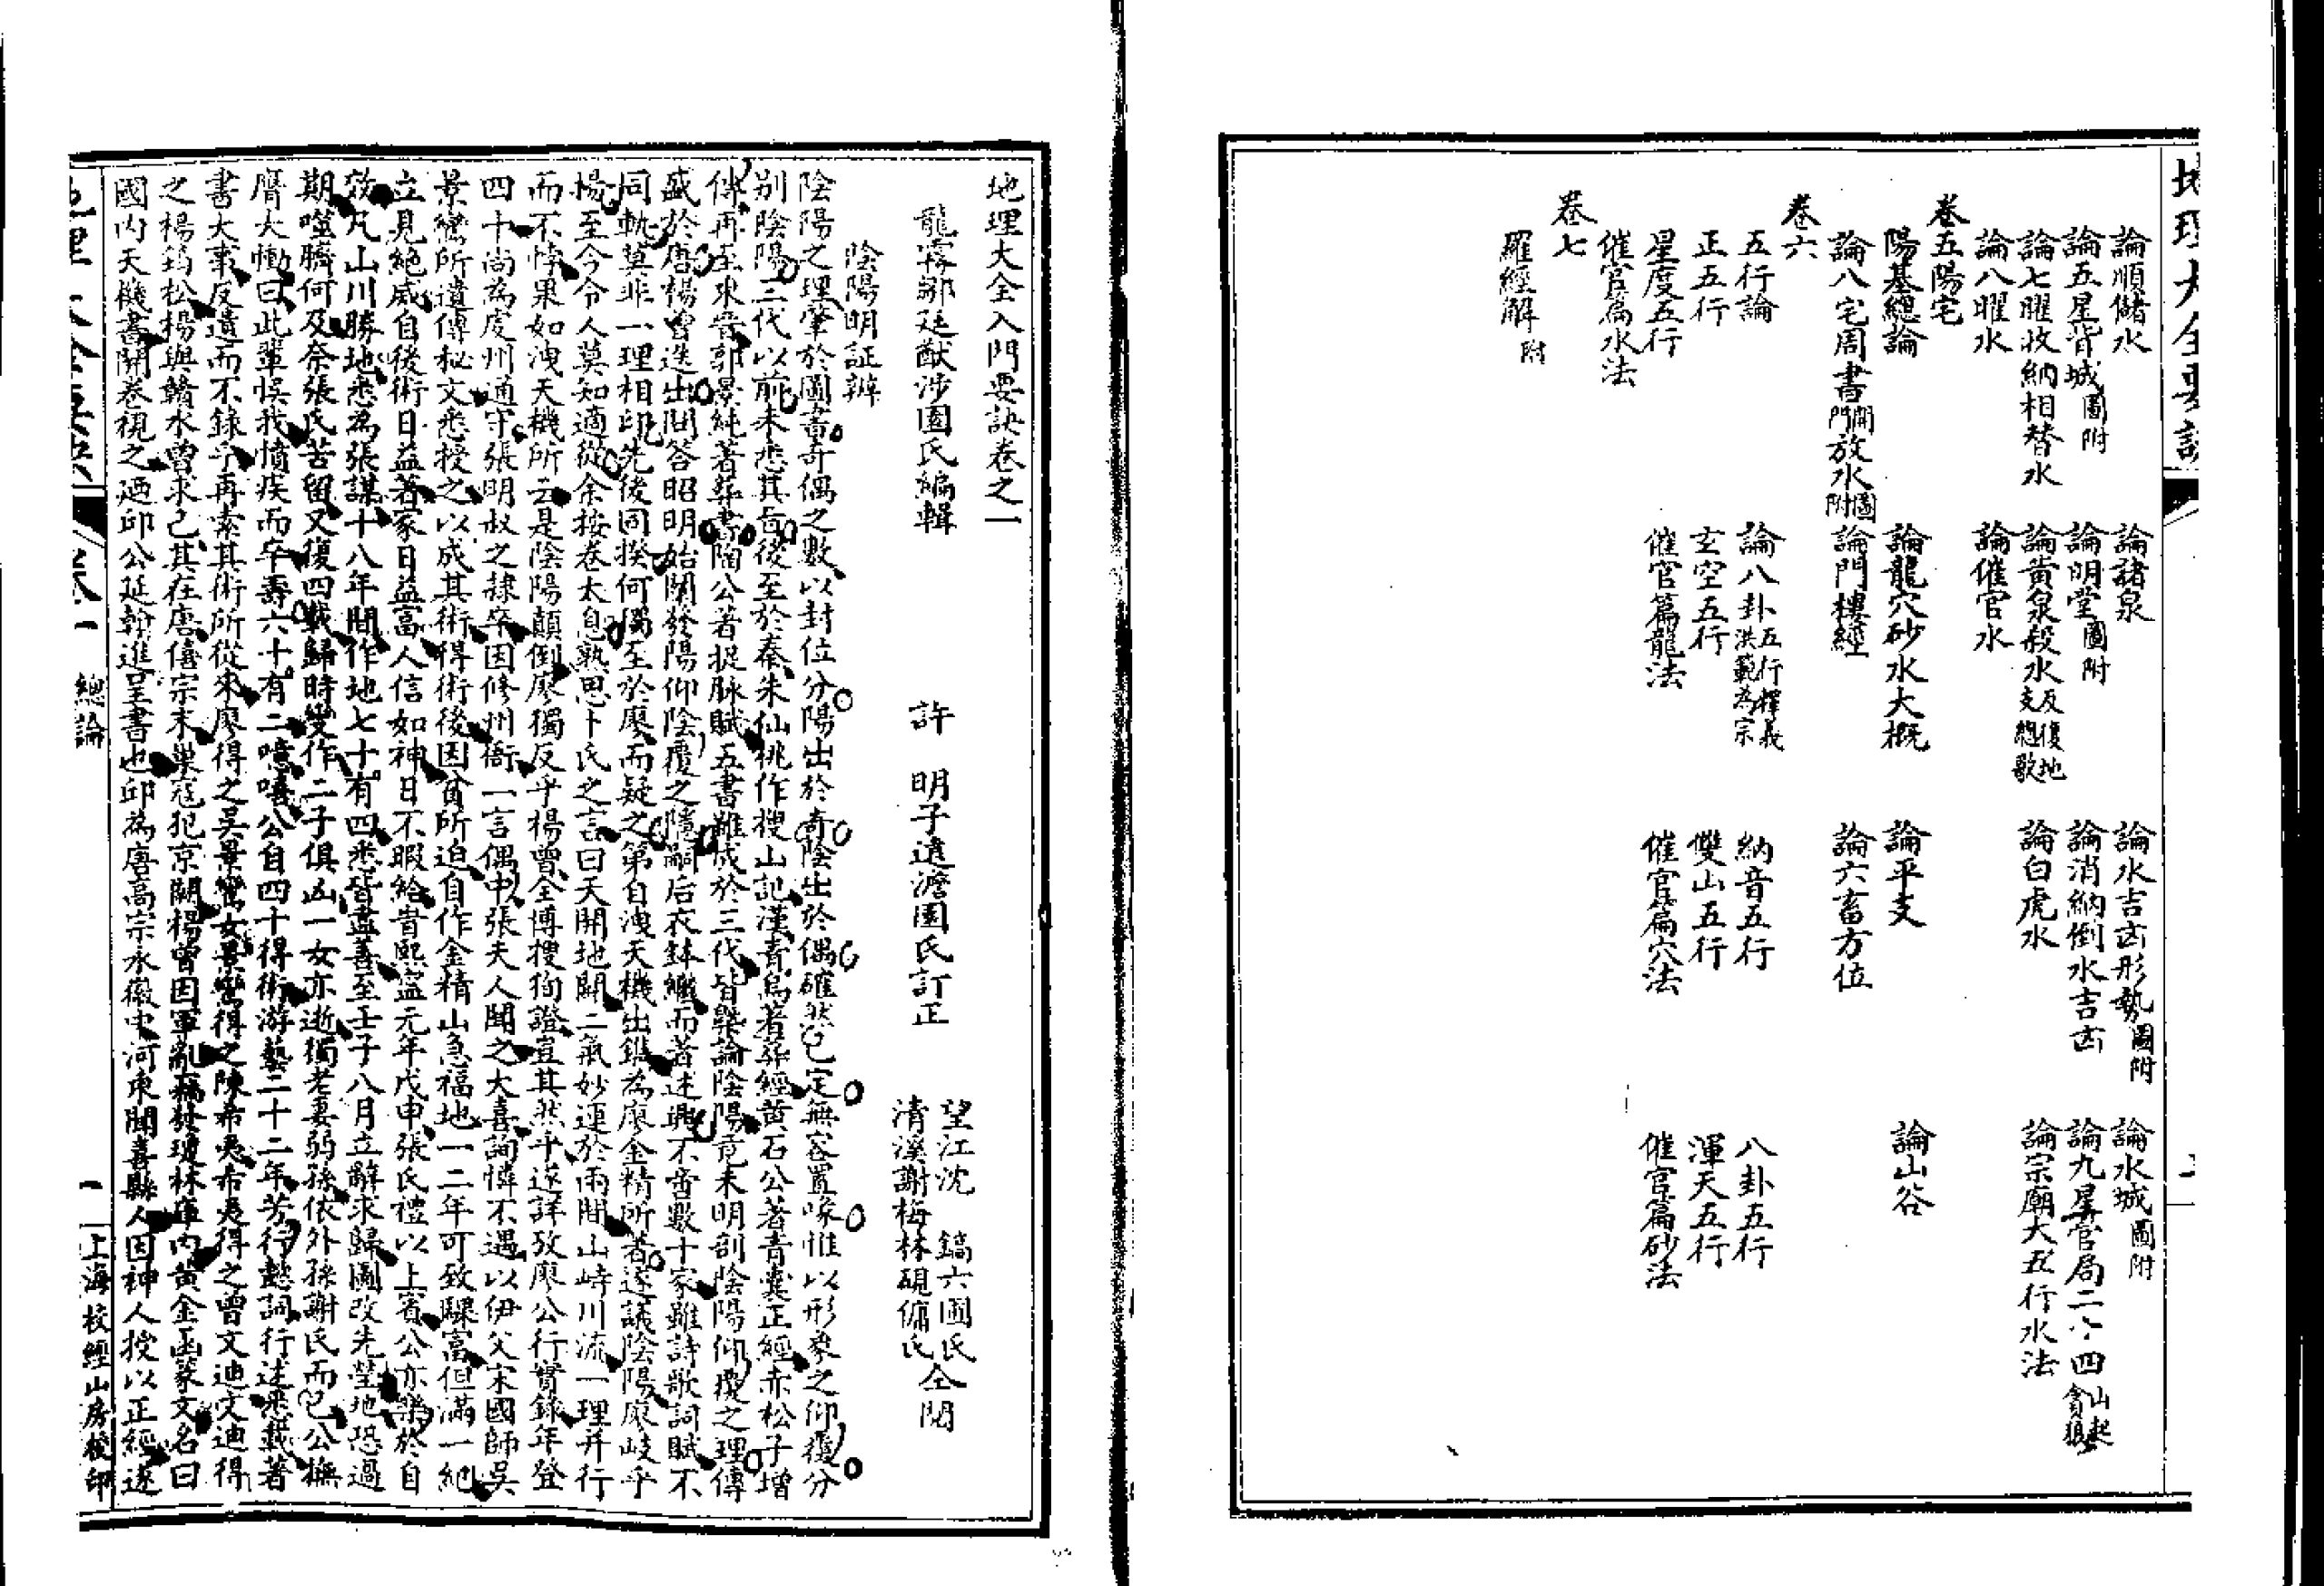 地理大全要訣
論順儲水　論諸泉　論水吉凶形勢圖附　論水城圖附
論五星皆城圖附　論明堂圖附　論消納倒水吉凶　論九星官局二十四山起貪狼
論七曜收納相替水　論黃泉殺水反復地支總歌　論白虎水　論宗廟大五行水法
論八曜水　論催官水
卷五陽宅
陽基總論　論龍穴砂水大概　論平支　論山谷
論八宅周書開門放水圖附　論門樓經　論六畜方位
卷六
五行論　論八卦五行擇義洪範為宗　納音五行　八卦五行
正五行　玄空五行　雙山五行　渾天五行
星度五行　催官篇龍法　催官篇穴法　催官篇砂法
催官篇水法
卷七
羅經解附
地理大全入門要訣卷之一
龍霧鄒廷猷涉園氏編輯　許　明子遠澹園氏訂正　望江沈　鎬六圃氏　清溪謝梅林硯傭氏　仝閱
陰陽明証辨
陰陽之理肇於圖書奇偶之數以封位分陽出於奇陰出於偶確然已定無容置喙惟以形象之仰覆分
別陰陽三代以前未悉其旨後至於秦朱仙桃作搜山記漢青烏著葬經黃石公著青囊正經赤松子增
傳再至東晉郭景純著葬書陶公著捉脉賦五書雖成於三代皆槩論陰陽竟未明剖陰陽仰覆之理傳
盛於唐楊曾迭出問答昭明始闡發陽仰陰覆之隱嗣后衣鉢繼而著述興不啻數十家雖詩歌詞賦不
同軌莫非一理相印先後同揆何獨至於廖而疑之第自洩天機出鐫為廖金精所著遂議陰陽廖岐乎
楊至今令人莫知適從余按卷太息熟思卜氏之言曰天開地闢二氣妙運於兩間山峙川流一理并行
而不悖果如洩天機所云是陰陽顛倒廖獨反乎楊曾全博搜狥證豈其然乎遂詳攷廖公行實錄年登
四十尚為虔州通守張明叔之隷卒因修州衙一言偶中張夫人聞之大喜詢憐不遇以伊父宋國師吳
景鸞所遺傳秘文悉授之以成其術得術後因貧所迫自作金精山急福地一二年可致驟富但滿一紀
立見絕滅自後術日益著家日益富人信如神日不暇給當熙寧元年戊申張氏禮以上賓公亦樂於自
效凡山川勝地悉為張謀十八年間作地七十有四悉皆盡善至壬子八月立辭求歸圖改先塋地恐過
期噬臍何及奈張氏苦留又復四載歸時雙作二子俱凶一女亦逝獨老妻弱孫依外孫謝氏而已公撫
膺大慟曰此輩悞我憤疾而卒壽六十有二噫嘻公自四十得術游藝二十二年芳行懿詞行述悉載著
書大事反遺而不錄予再素其術所從來廖得之吳景鸞女景鸞得之陳希夷希夷得之曾文迪文迪得
之楊筠松楊與贛水曾求己其在唐僖宗末巢寇犯京闕楊曾因軍亂竊發瓊林庫內黃金函篆文名曰
國內天機書開卷視之廼邱公延翰進呈書也邱為唐高宗永徽中河東聞喜縣人因神人授以正經遂
卷一　總論　一　上海校經山房校印